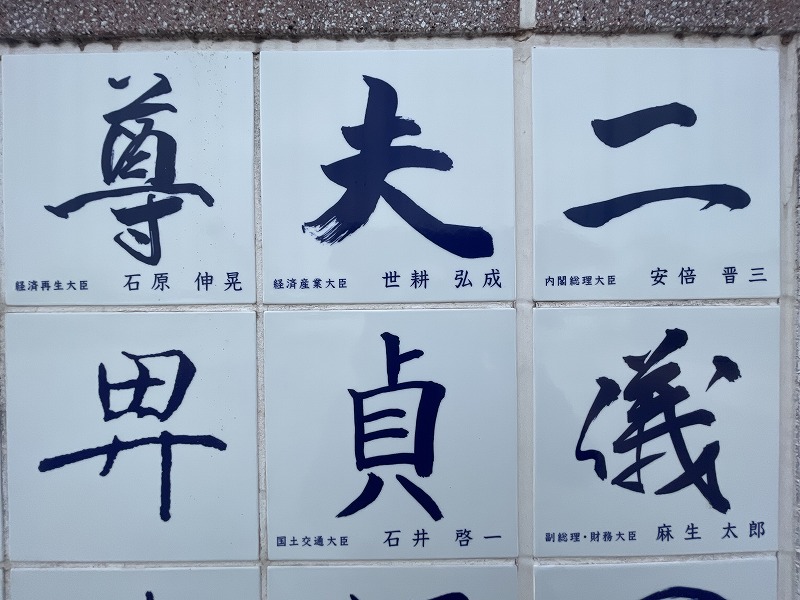 二
内閣総理大臣 安倍 晋三
儀
副総理・財務大臣 麻生 太郎
夫
経済産業大臣 世耕 弘成
貞
国土交通大臣 石井 啓一
尊
経済再生大臣 石原 伸晃
卑